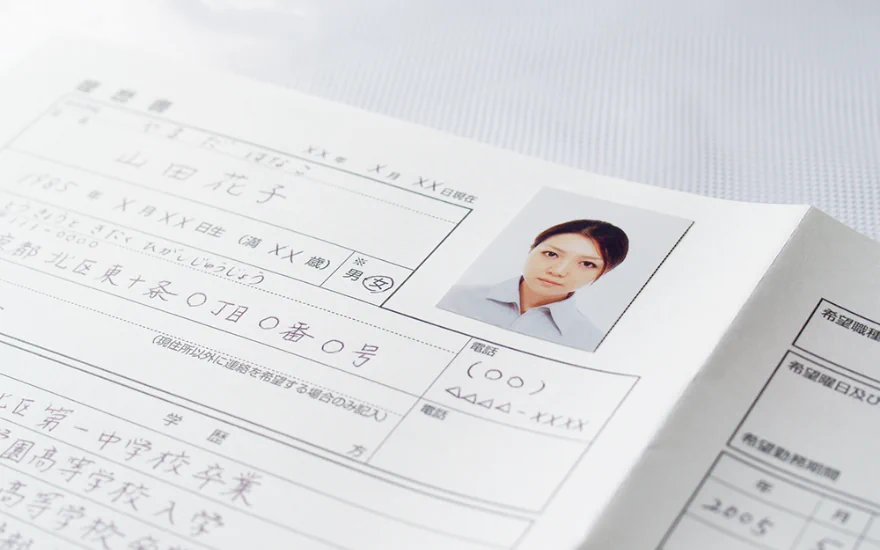 履歴書
XX年 X月 XX日現在
やまだ はなこ
山田花子
1985年 X月XX日生 (満 XX 歳)
※
男 女
とうきょうと きたく ひがしじゅうじょう
京都北区東十条〇丁目〇番〇号
電話
(〇〇)
△△△△-XXXX
(現住所以外に連絡を希望する場合のみ記入)
方
電話
学歴
北区第一中学校卒業
学園高等学校入学
高等学校卒業
希望職種
希望曜日及び
希望勤務期間
年 月
2005